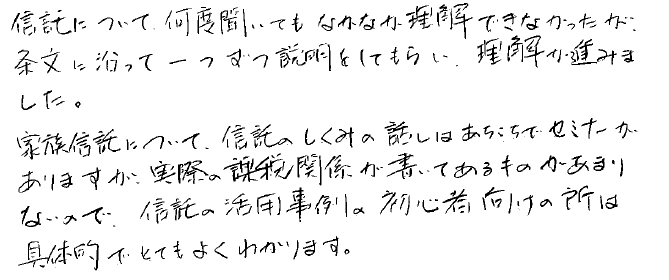 信託について、何度聞いてもなかなか理解できなかったが、
条文に沿って一つずつ説明をしてもらい、理解が進みま
した。
家族信託について、信託のしくみの話しはあちこちでセミナーが
ありますが、実際の課税関係が書いてあるものがあまり
ないので、信託の活用事例の初心者向けの所は
具体的でとてもよくわかります。